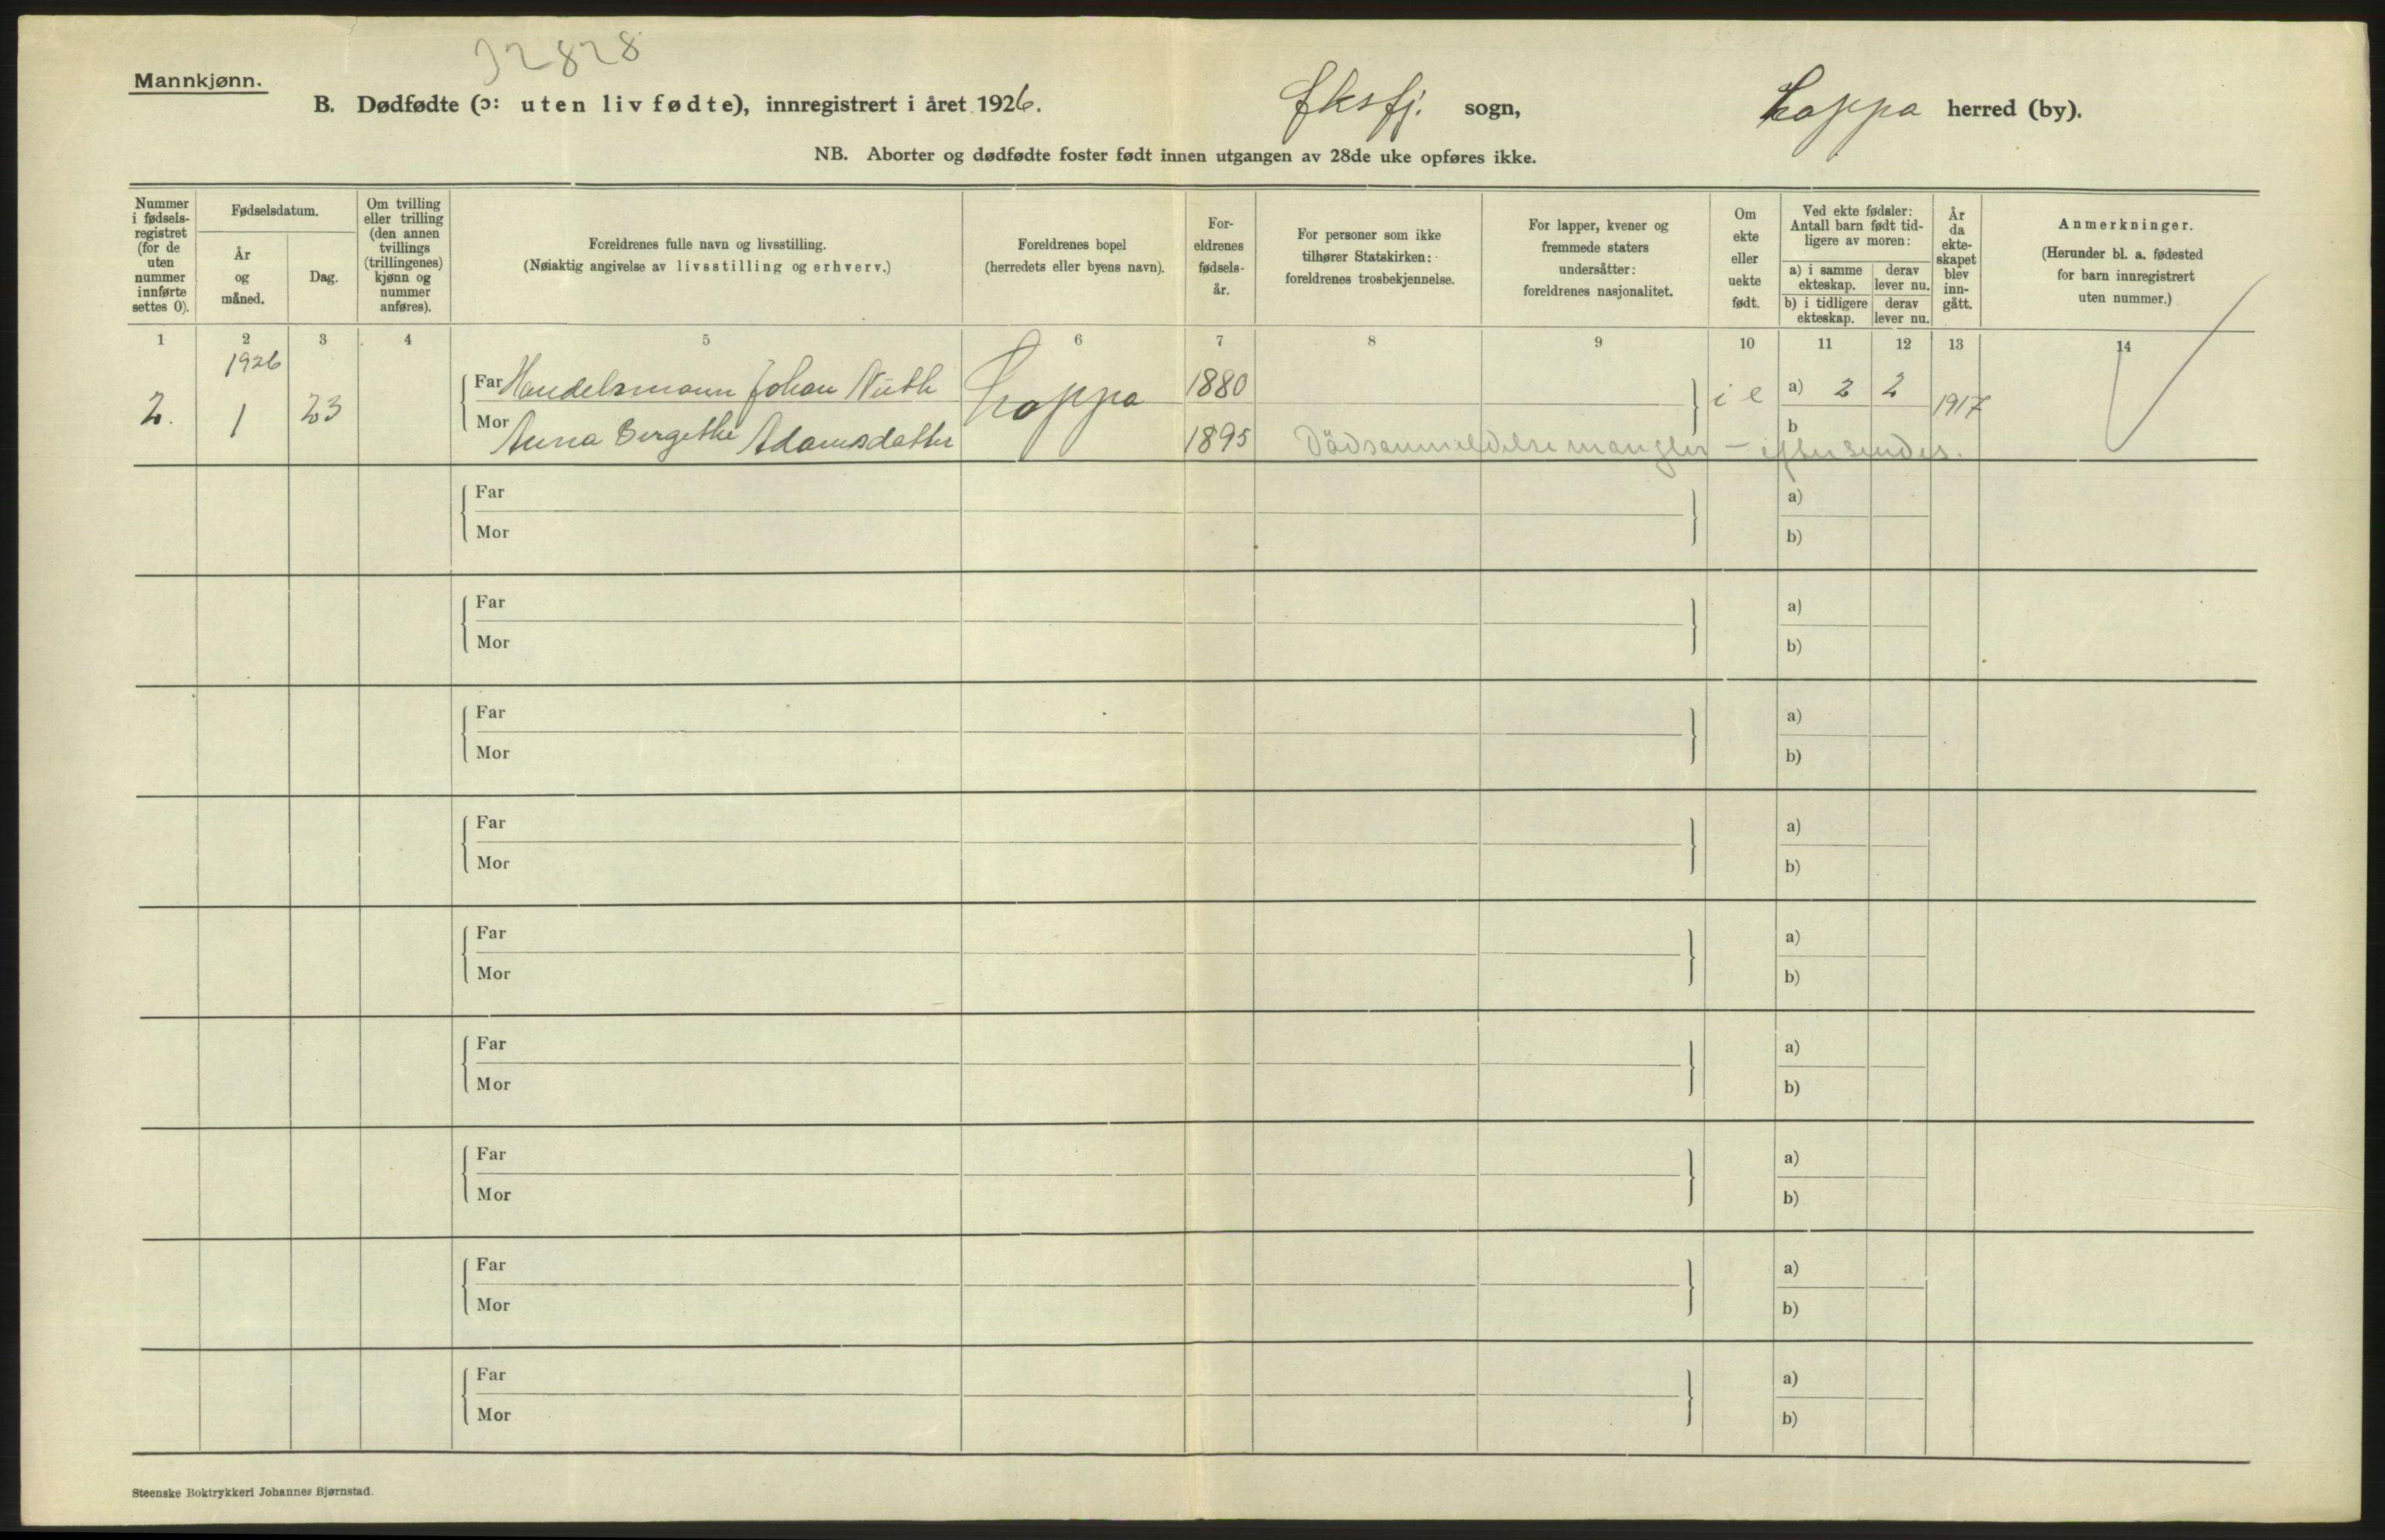 32828
Mannkjønn.
B. Dødfødte (ɔ: uten liv fødte), innregistrert i året 1926.
Øksfj. sogn,
Loppa herred (by).
NB. Aborter og dødfødte foster født innen utgangen av 28de uke opføres ikke.
Nummer
i fødsels-
registret
(for de
uten
nummer
innførte
settes 0).
Fødselsdatum.
År
og
måned.
Dag.
Om tvilling
eller trilling
(den annen
tvillings
(trillingenes)
kjønn og
nummer
anføres).
Foreldrenes fulle navn og livsstilling.
(Nøiaktig angivelse av livsstilling og erhverv.)
Foreldrenes bopel
(herredets eller byens navn).
For-
eldrenes
fødsels-
år.
For personer som ikke
tilhører Statskirken:
foreldrenes trosbekjennelse.
For lapper, kvener og
fremmede staters
undersåtter:
foreldrenes nasjonalitet.
Om
ekte
eller
uekte
født.
Ved ekte fødsler:
Antall barn født tid-
ligere av moren:
a) i samme
ekteskap.
derav
lever nu.
b) i tidligere
ekteskap.
derav
lever nu.
År
da
ekte-
skapet
blev
inn-
gått.
Anmerkninger.
(Herunder bl. a. fødested
for barn innregistrert
uten nummer.)
1 2 3 4 5 6 7 8 9 10 11 12 13 14
1926
2. 1 23
Far Handelsmann Johan Nuth Loppa 1880 i e a) 2 2 1917
Mor Anna Bergethe Adamsdatter 1895 b
Dödsanmeldelse mangler — eftersendes.
Far a)
Mor b)
Far a)
Mor b)
Far a)
Mor b)
Far a)
Mor b)
Far a)
Mor b)
Far a)
Mor b)
Far a)
Mor b)
Far a)
Mor b)
Far a)
Mor b)
Steenske Boktrykkeri Johannes Bjørnstad.